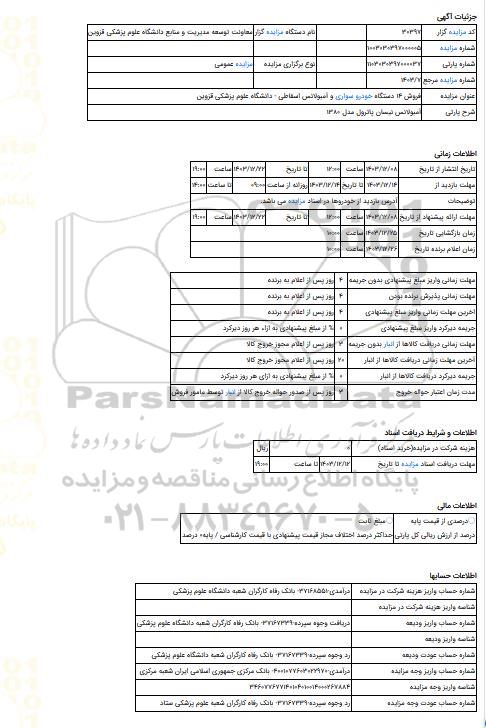 جزئیات آگهی
کد مزایده گزار ۳۰۳۹۷ نام دستگاه مزایده گزار معاونت توسعه مدیریت و منابع دانشگاه علوم پزشکی قزوین
شماره مزایده ۱۰۰۳۰۳۰۳۹۷۰۰۰۰۰۵
شماره پارتی ۱۱۰۳۰۳۰۳۹۷۰۰۰۰۳۷ نوع برگزاری مزایده مزایده عمومی
شماره مزایده مرجع ۱۴۰۳/۷
عنوان مزایده فروش ۱۴ دستگاه خودرو سواری و آمبولانس اسقاطی - دانشگاه علوم پزشکی قزوین
شرح پارتی آمبولانس نیسان پاترول مدل ۱۳۸۰
اطلاعات زمانی
تاریخ انتشار از تاریخ ۱۴۰۳/۱۲/۰۸ ساعت ۱۲:۰۰ تا تاریخ ۱۴۰۳/۱۲/۲۲ ساعت ۱۹:۰۰
مهلت بازدید از ۱۴۰۳/۱۲/۱۴ تا تاریخ ۱۴۰۳/۱۲/۱۴ روزانه از ساعت ۰۹:۰۰ تا ساعت ۱۴:۰۰
توضیحات آدرس بازدید از خودروها در اسناد مزایده می باشد.
مهلت ارائه پیشنهاد از تاریخ ۱۴۰۳/۱۲/۰۸ ساعت ۱۲:۰۰ تا تاریخ ۱۴۰۳/۱۲/۲۲ ساعت ۱۹:۰۰
زمان بازگشایی تاریخ ۱۴۰۳/۱۲/۲۵ ساعت ۱۰:۰۰
زمان اعلام برنده تاریخ ۱۴۰۳/۱۲/۲۶ ساعت ۱۰:۰۰
مهلت زمانی واریز مبلغ پیشنهادی بدون جریمه ۴ روز پس از اعلام به برنده
مهلت زمانی پذیرش برنده بودن ۴ روز پس از اعلام به برنده
آخرین مهلت زمانی واریز مبلغ پیشنهادی ۴ روز پس از اعلام به برنده
جریمه دیرکرد واریز مبلغ پیشنهادی ۰ % از مبلغ پیشنهادی به ازاء هر روز دیرکرد
مهلت زمانی دریافت کالاها از انبار بدون جریمه ۳ روز پس از اعلام مجوز خروج کالا
آخرین مهلت زمانی دریافت کالاها از انبار ۲۰ روز پس از اعلام مجوز خروج کالا
جریمه دیرکرد دریافت کالاها از انبار ۰ % از مبلغ پیشنهادی به ازای هر روز دیرکرد
مدت زمان اعتبار حواله خروج ۳ روز پس از صدور حواله خروج کالا از انبار توسط مامور فروش
ParsNamadData
فرآوری اطلاعات پارس نماد داده ها
اطلاعات و شرایط دریافت اسناد
هزینه شرکت در مزایده(خرید اسناد) ۰ ریال
مهلت دریافت اسناد مزایده تا تاریخ ۱۴۰۳/۱۲/۱۲ تا ساعت ۱۹:۰۰
پایگاه اطلاع رسانی مناقصه و مزایده
۰۲۱-۸۸۳۴۹۶۷۰-۵
اطلاعات مالی
درصدی از قیمت پایه مبلغ ثابت
درصد از ارزش ریالی کل پارتی حداکثر درصد اختلاف مجاز قیمت پیشنهادی با قیمت کارشناسی / پایه۰ درصد
اطلاعات حسابها
شماره حساب واریز هزینه شرکت در مزایده درآمدی-۳۷۱۶۸۵۵۱- بانک رفاه کارگران شعبه دانشگاه علوم پزشکی
شناسه واریز هزینه شرکت در مزایده
شماره حساب واریز ودیعه دریافت وجوه سپرده-۳۷۱۶۷۳۳۹- بانک رفاه کارگران شعبه دانشگاه علوم پزشکی
شناسه واریز ودیعه
شماره حساب عودت ودیعه رد وجوه سپرده-۳۷۱۶۷۳۳۹- بانک رفاه کارگران شعبه دانشگاه علوم پزشکی
شماره حساب واریز وجه مزایده درآمدی-۴۰۰۱۰۷۷۶۰۳۰۲۲۹۷۰- بانک مرکزی جمهوری اسلامی ایران شعبه مرکزی
شناسه واریز وجه مزایده
شماره حساب عودت وجه مزایده رد وجوه سپرده-۳۷۱۶۷۳۳۹- بانک رفاه کارگران شعبه دانشگاه علوم پزشکی ستاد